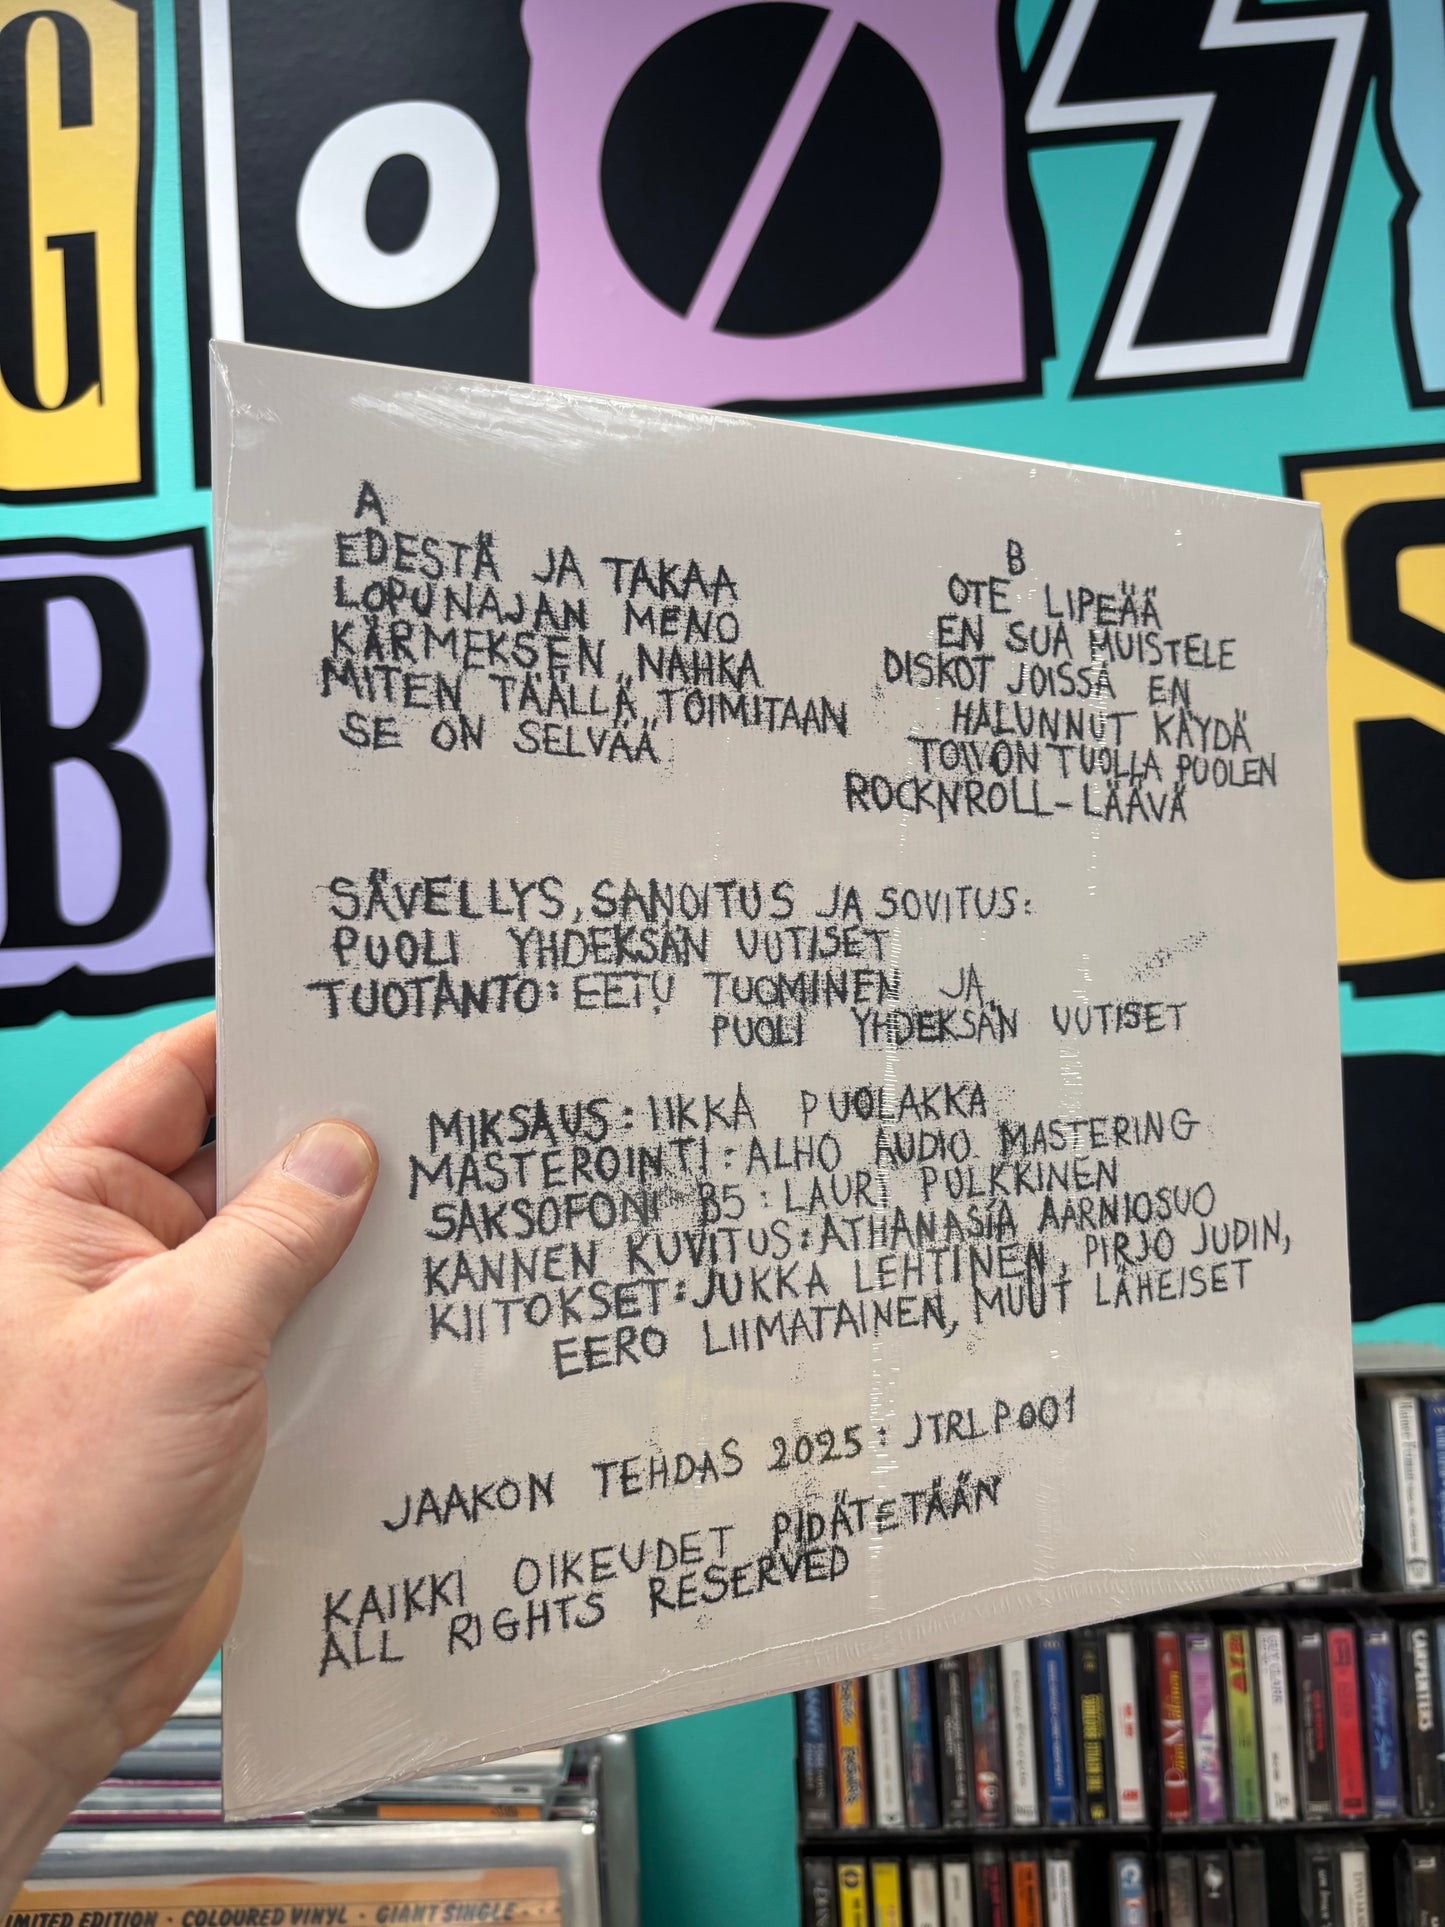 GOOS
B S
A
EDESTÄ JA TAKAA
LOPUNAJAN MENO
KÄRMEKSEN NAHKA
MITEN TÄÄLLÄ TOIMITAAN
SE ON SELVÄÄ
B
OTE LIPEÄÄ
EN SUA MUISTELE
DISKOT JOISSA EN
HALUNNUT KÄYDÄ
TOIVON TUOLLA PUOLEN
ROCKNROLL-LÄÄVÄ
SÄVELLYS, SANOITUS JA SOVITUS:
PUOLI YHDEKSÄN UUTISET
TUOTANTO: EETU TUOMINEN JA
PUOLI YHDEKSÄN UUTISET
MIKSAUS: IIKKA PUOLAKKA
MASTEROINTI: ALHO AUDIO MASTERING
SAKSOFONI B5: LAURI PULKKINEN
KANNEN KUVITUS: ATHANASÍA AARNIOSUO
KIITOKSET: JUKKA LEHTINEN, PIRJO JUDIN,
EERO LIIMATAINEN, MUUT LÄHEISET
JAAKON TEHDAS 2025: JTRLP001
KAIKKI OIKEUDET PIDÄTETÄÄN
ALL RIGHTS RESERVED
CARPENTERS
LIMITED EDITION · COLOURED VINYL · GIANT SINGLE